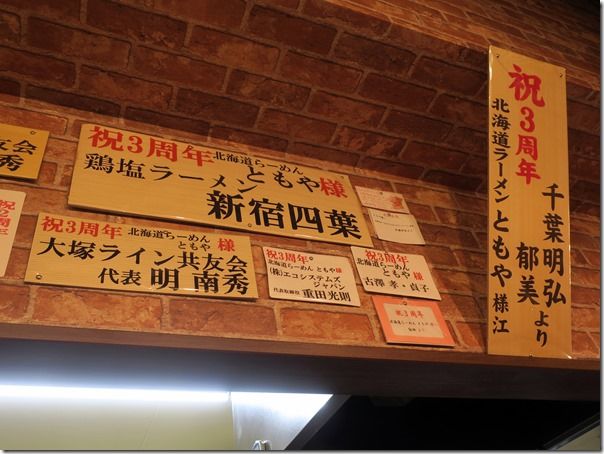 友会
秀
祝2周年
祝3周年 北海道らーめん ともや 様
鶏塩ラーメン
新宿四葉
祝3周年 北海道らーめん ともや 様
大塚ライン共友会
代表 明 南秀
祝3周年
北海道らーめん ともや様
(株)エコシステムズ
ジャパン
代表取締役 重田光則
祝3周年
北海道らーめん ともや 様
古澤 孝・貞子
祝3周年
祝3周年
北海道ラーメン ともや 様江
千葉明弘
郁美 より